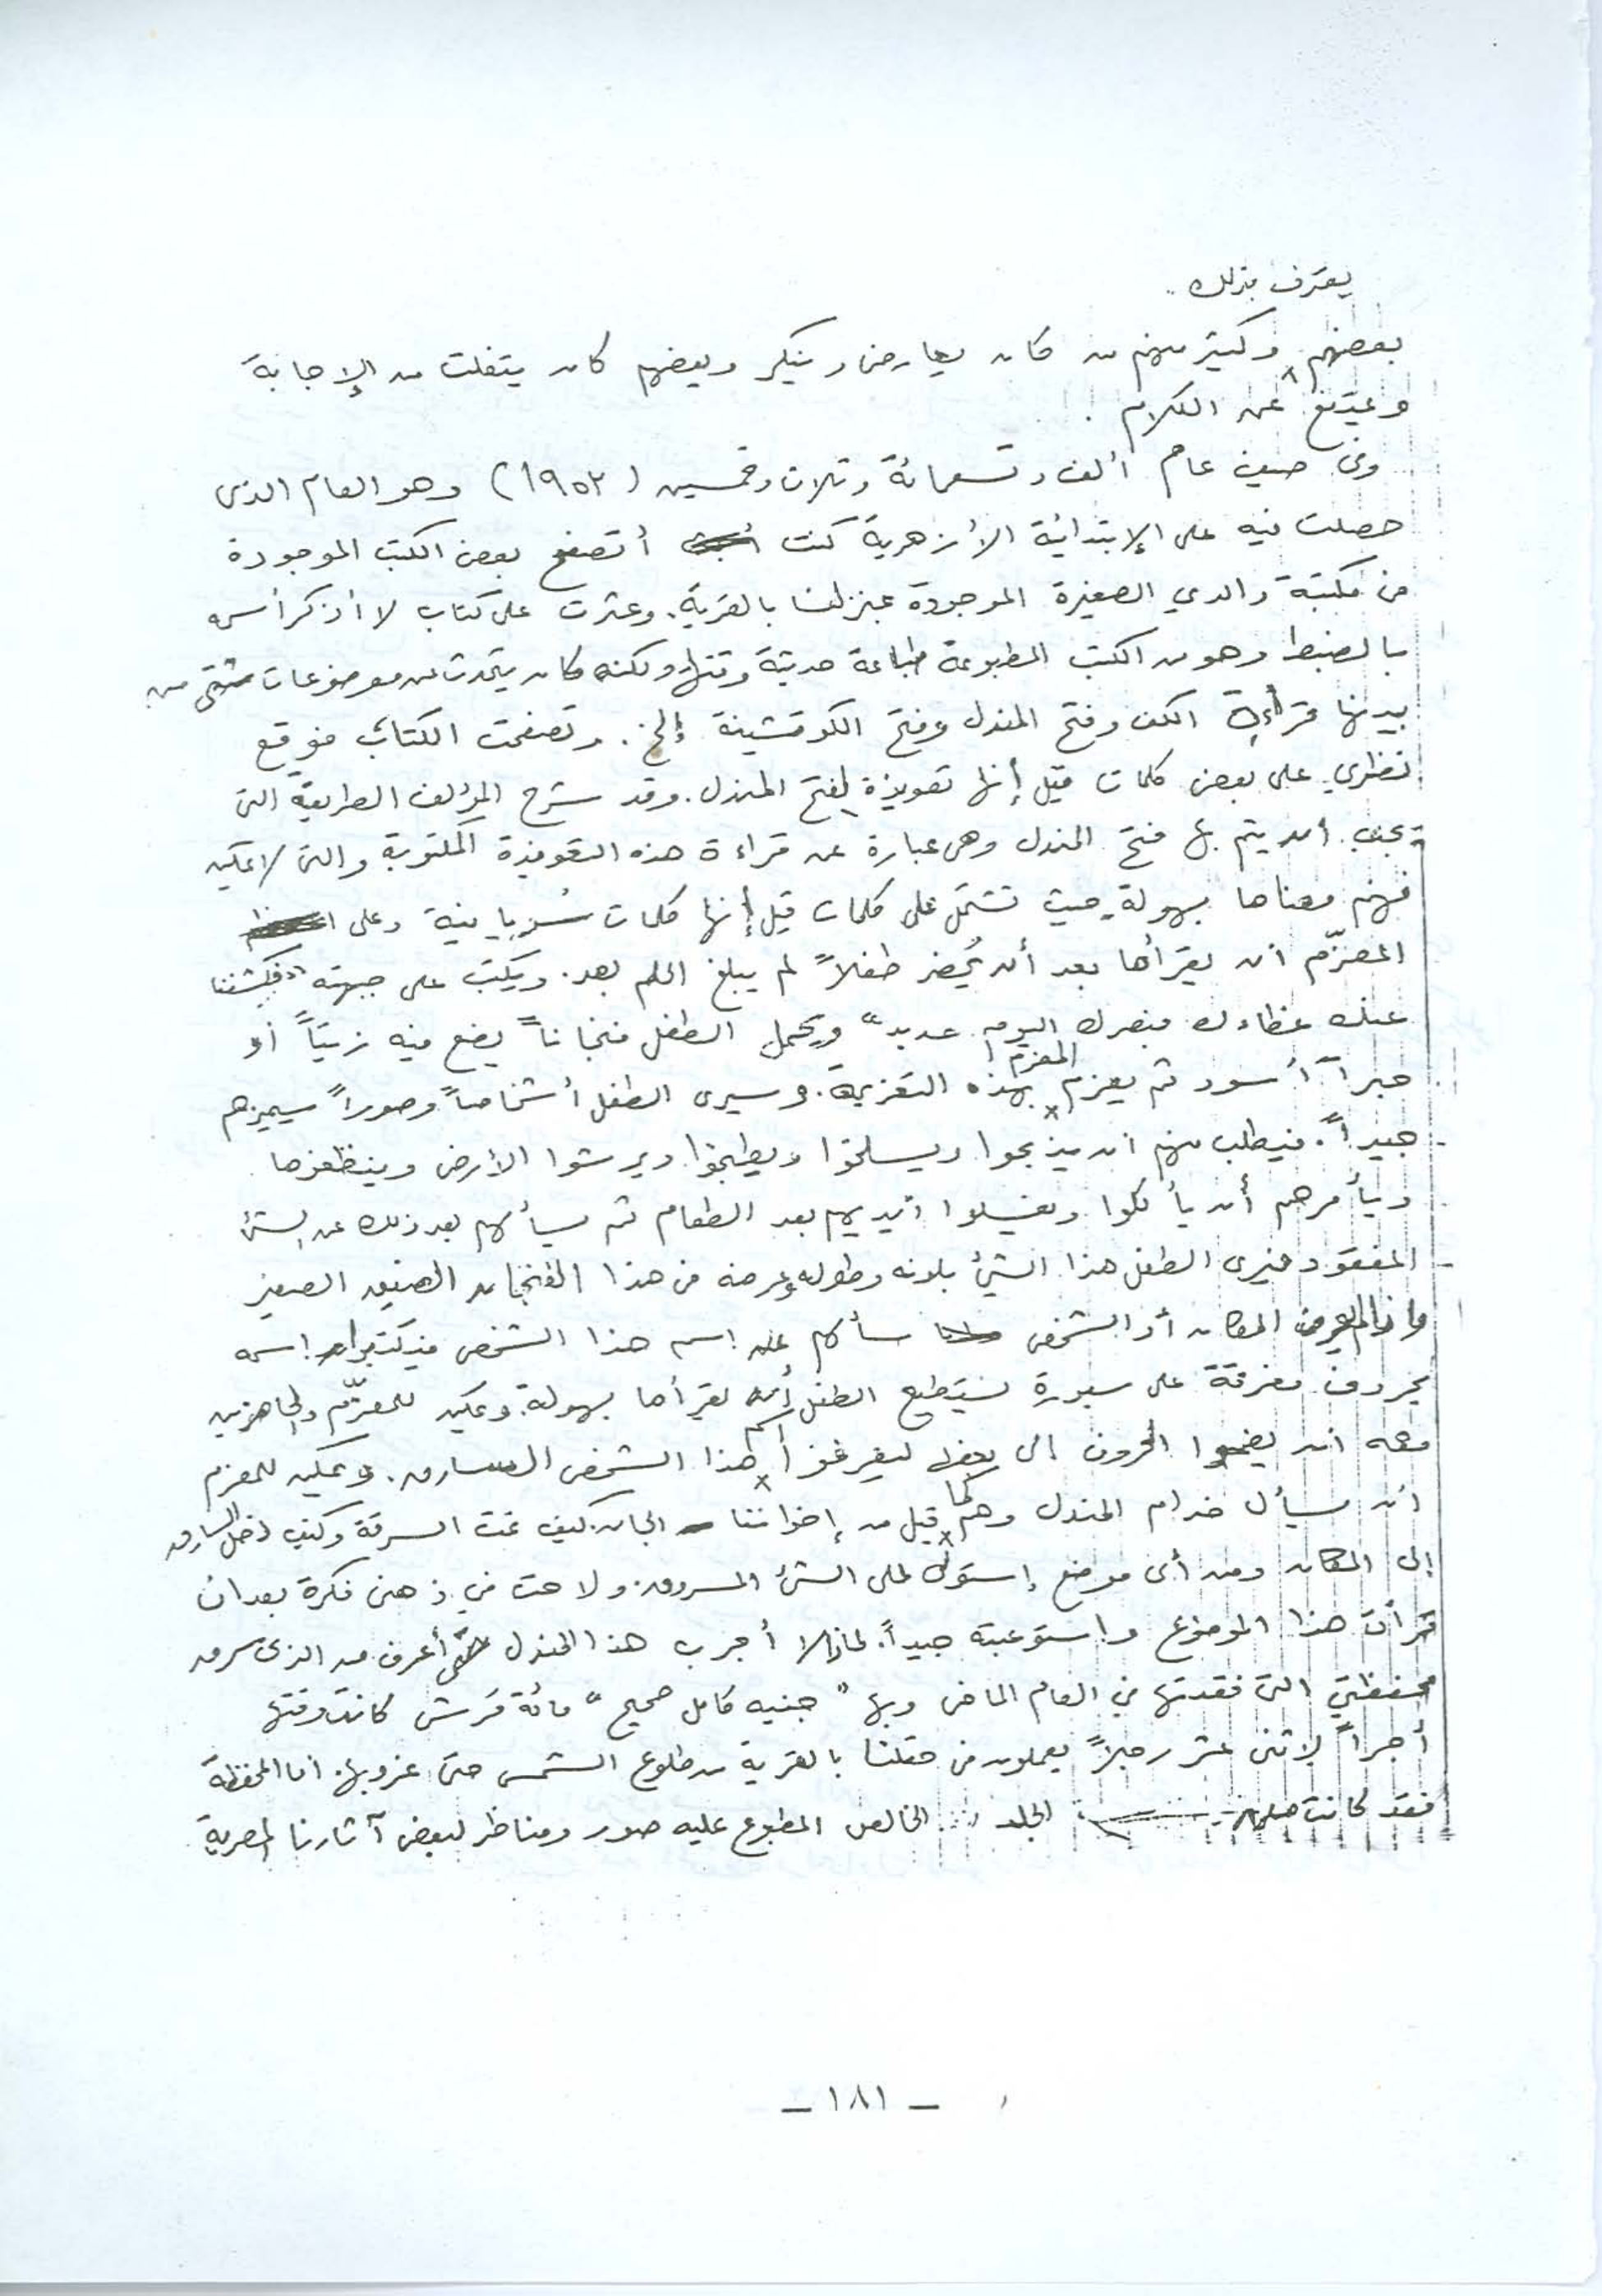 يعترف بذلك
بعضهم وكثير منهم من كان يعارض وينكر وبعضهم كان يتفلت من الإجابة
ويمتنع عن الكلام .
وفى صيف عام ألف وتسعمائة وثلاث وخمسين (١٩٥٣) وهو العام الذى
حصلت فيه على الإبتدائية الأزهرية كنت أتصفح بعض الكتب الموجودة
فى مكتبة والدي الصغيرة الموجودة بمنزلنا بالقرية. وعثرت على كتاب لا أذكر أسمه
بالضبط وهو من الكتب المطبوعة طباعة حديثة وقتها ولكنه كان يتحدث عن موضوعات شتى من
بينها قراءة الكف وفتح المندل وفتح الكوتشينة إلخ. وتصفحت الكتاب فوقع
نظري على بعض كلمات قيل إنها تعويذة لفتح المندل. وقد شرح المؤلف الطريقة التى
يجب أن يتم بها فتح المندل وهى عبارة عن قراءة هذه التعويذة المكتوبة والتى لا يمكن
فهم معناها بسهولة حيث تشتمل على كلمات قيل إنها كلمات سُريانية وعلى
المعزّم ان يقرأها بعد أن يُحضر طفلاً لم يبلغ الحلم بعد. ويكتب على جبهته "فكشفنا
عنك غطاءك فبصرك اليوم حديد" ويحمل الطفل فنجاناً يضع فيه زيتاً أو
حبراً أسود ثم يعزم المعزم بهذه التعزيمة. وسيرى الطفل أشخاصاً وصوراً سيميزهم
جيداً. فيطلب منهم ان يذبحوا ويسلخوا ويطبخوا ويرشوا الأرض وينظفوها
ويأمرهم أن يأكلوا ويغسلوا أيديهم بعد الطعام ثم يسألهم بعد ذلك عن الشئ
المفقود فيرى الطفل هذا الشئ بلونه وطوله وعرضه فى هذا الفنجان الضيق الصغير
واذا لم يعرف المكان أو الشخص سألهم عن اسم هذا الشخص فيكتبوا اسمه
بحروف مفرقة على سبورة يستطيع الطفل أن يقرأها بسهولة. ويمكن للمعزّم والحاضرين
معه ان يضموا الحروف الى بعضها ليعرفوا أسم هذا الشخص السارق. ويمكن للمعزم
ان يسأل خدام المندل وهم كما قيل من إخواننا الجان كيف تمت السرقة وكيف دخل السارق
إلى المكان ومن أى موضع إستولى على الشئ المسروق. ولاحت في ذهنى فكرة بعد ان
قرأت هذا الموضوع واستوعبته جيداً. لماذا لا أجرب هذا المندل حتى أعرف من الذى سرق
محفظتي التى فقدتها في العام الماضى وبها "جنيه كامل صحيح" مائة قرش كانت وقتها
أجراً لإثنى عشر رجلاً يعملون فى حقلنا بالقرية من طلوع الشمس حتى غروبها. اما المحفظة
فقد كانت من الجلد الخالص المطبوع عليه صور ومناظر لبعض آثارنا المصرية
- ١٨١ -